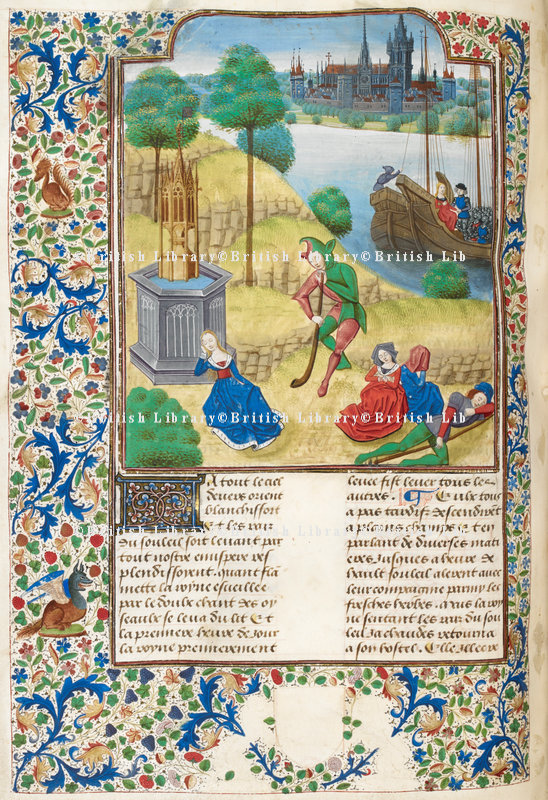 British Library©British Library©British Lib
British Library©British Library©British Lib
British Library©British Library©British Lib
A tout le ciel
deuers orient
blanchissoit
et les rais
du souleil soit leuant par
tout nostre emispere res
plendissoyent. quant fla
mette la royne esueillee
par le doulx chant des oy
seaulx se leua du lit Et
a la premiere heure de jour
la royne premierement
leuee fist leuer tous les
autres. Eulx tous
a pas tardif descendirent
a plains champs et en
parlant de diuerses mati
eres Jusques a heure de
hault souleil alerent auec
leur compaignie parmy les
fresches herbes. la roy
ne sentant les rais du so
leil Ja chaudes retourna
a son hostel. Elle illecre